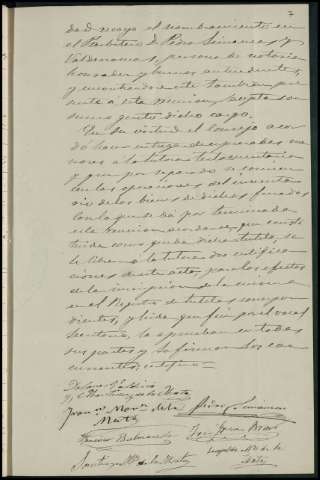 dad recayo el nombramiento en
el Presbitero D. Pedro Simarro y
Valdenamas, persona de notoria
honradez y buenos antecedentes,
y encontrandose este tambien pre
sente a esta reunion, acepta con
sumo gusto dicho cargo.
En su virtud el Consejo acor
do hacer entrega de aparados me
nores a la tutora testamentaria
y que por separado se comien
cen las operaciones del inventa
rio de los bienes de dichos finados
Con lo que se da por terminada
esta reunion acordando que consti
tuida como queda dicha tutela, se
le libren a la tutora dos certifica
ciones de este acta para los efectos
de la inscripcion de la misma
en el Registro de tutelas correspon
diente, y leida que fue por el vocal
Secretario, la aprueban en todas
sus partes y la firman los con
currentes, certifico =
de la Mata
Juan Man. de la
Mata
Pedro Simarro
Francisco
Santiago M. de la Mata
Leopoldo M. de la
Mata